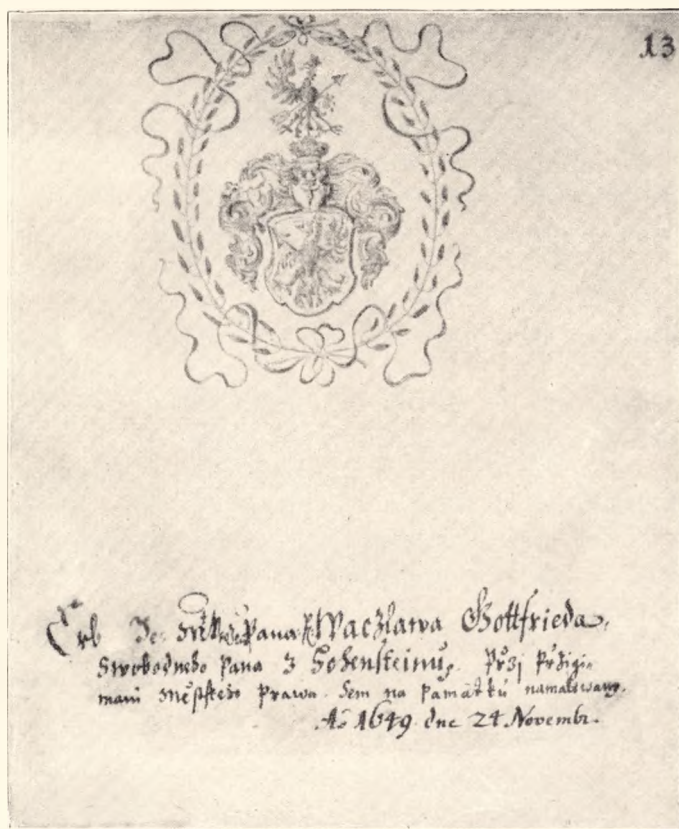 13
Erb Je: Pana Waczlawa Gottfrieda,
Swobodneho Pana z Hohensteinu, Przi Przigi=
mani Miestskeho Prawa. Sem na Pamatku namalowany.
Ao 1649 dne 24 Novembr.